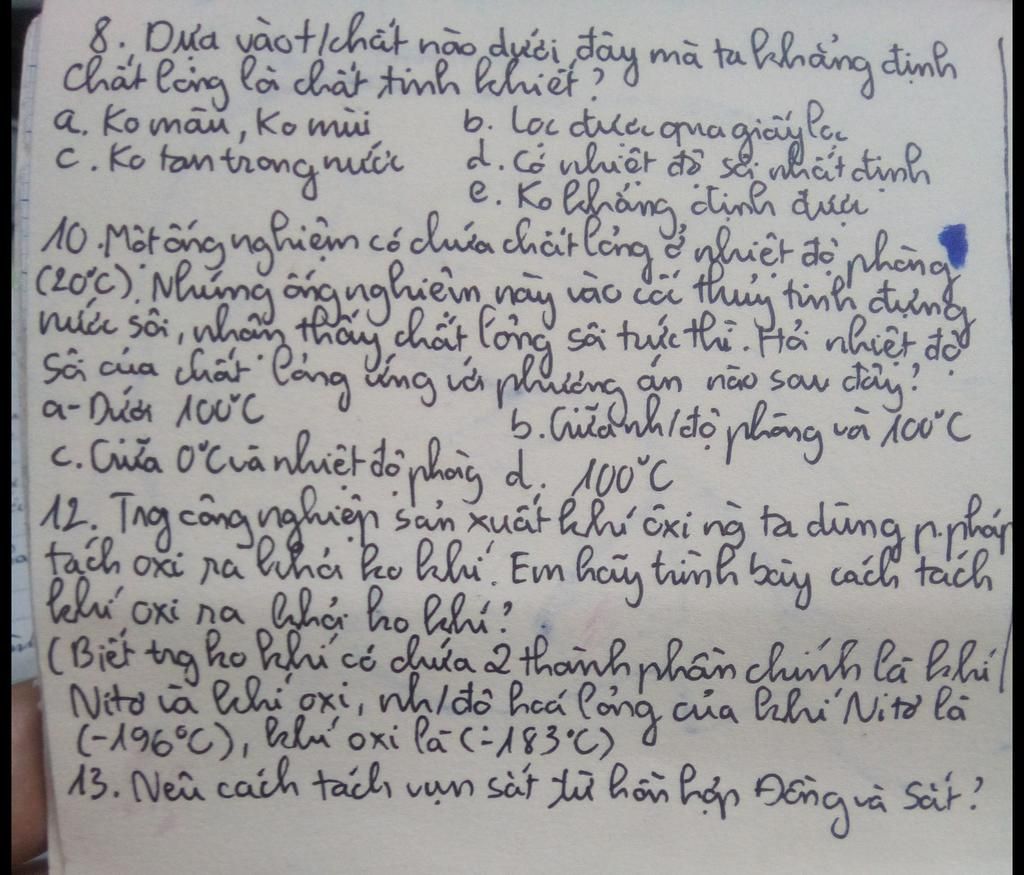 8. Dựa vào t/chất nào dưới đây mà ta khẳng định
chất lỏng là chất tinh khiết?
a. Ko màu, Ko mùi b. Lọc được qua giấy lọc
c. Ko tan trong nước d. Có nhiệt độ sôi nhất định
e. Ko khẳng định được
10. Một ống nghiệm có chứa chất lỏng ở nhiệt độ phòng
(20°C). Nhúng ống nghiệm này vào cốc thủy tinh đựng
nước sôi, nhận thấy chất lỏng sôi tức thì. Hỏi nhiệt độ
sôi của chất lỏng ứng với phương án nào sau đây?
a- Dưới 100°C b. Giữa nh/độ phòng và 100°C
c. Giữa 0°C và nhiệt độ phòng d. 100°C
12. Trg công nghiệp sản xuất khí ôxi ng ta dùng p.pháp
tách oxi ra khỏi ko khí. Em hãy trình bày cách tách
khí oxi ra khỏi ko khí?
(Biết trg ko khí có chứa 2 thành phần chính là khí
Nitơ và khí oxi, nh/độ hoá lỏng của khí Nitơ là
(-196°C), khí oxi là (-183°C)
13. Nêu cách tách vụn sắt từ hỗn hợp Đồng và Sắt?